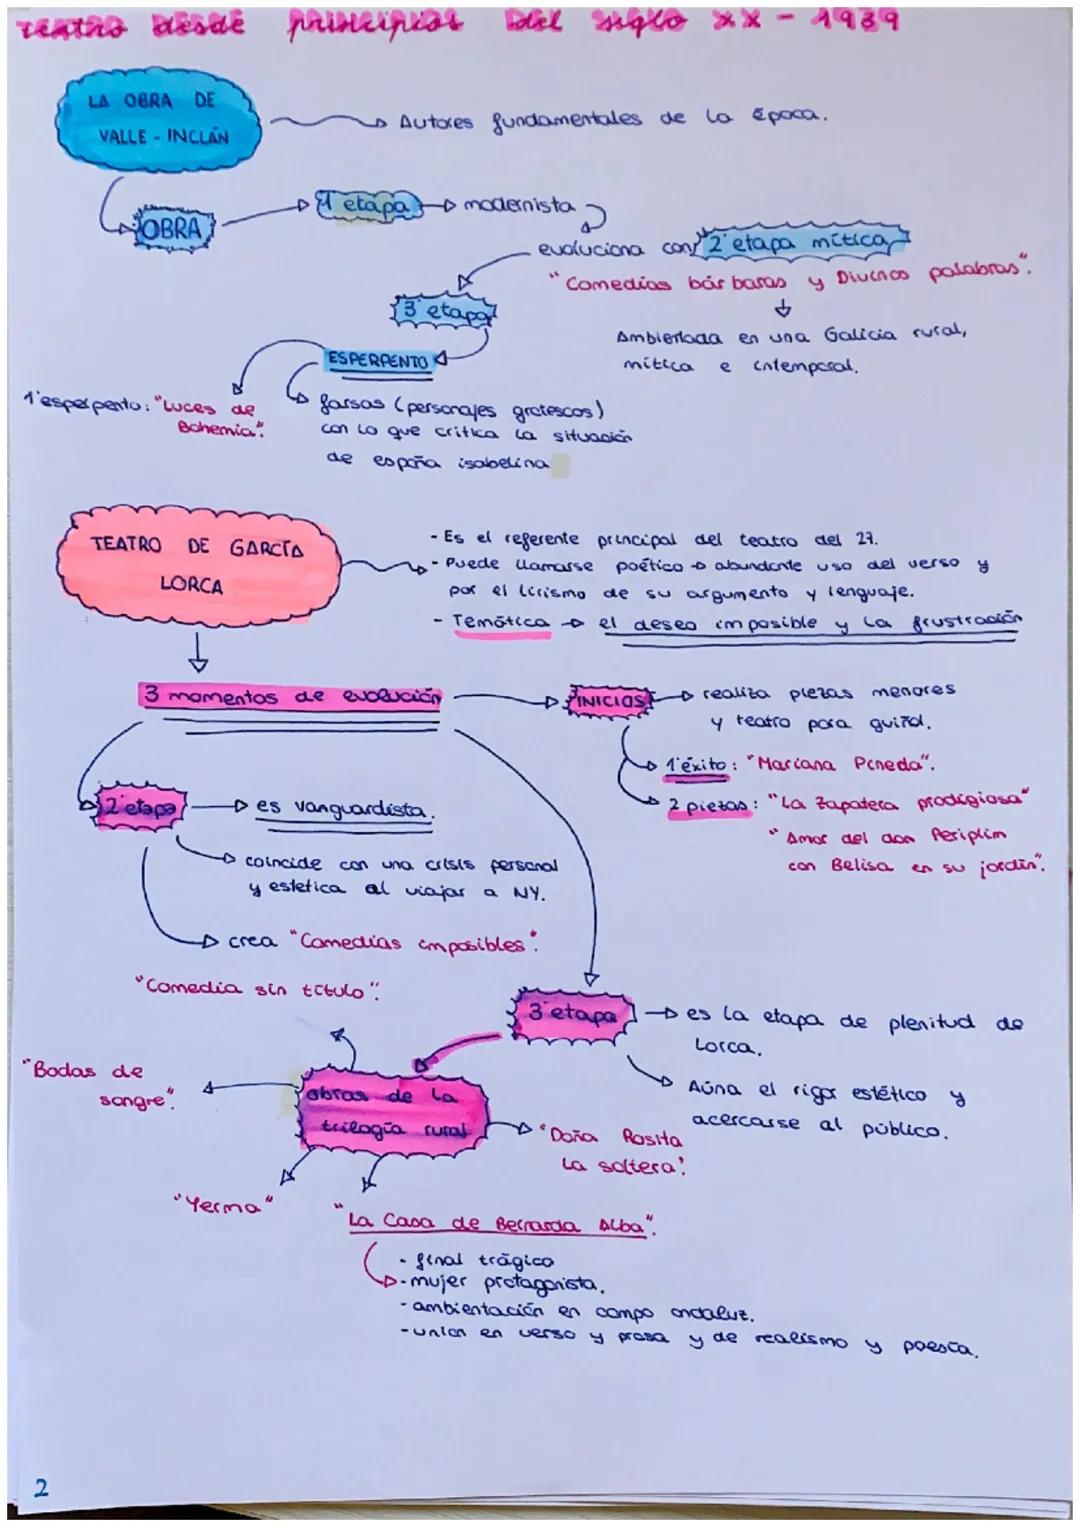 teatro desde principios del siglo XX - 1939
LA OBRA DE
VALLE - INCLÁN
Autores fundamentales de la época.
OBRA
1ª etapa
modernista
evoluciona con
2ª etapa mítica
"Comedias bárbaras y Divinas palabras".
Ambientada en una Galicia rural,
mítica e intemporal.
3ª etapa
ESPERPENTO
1ª esperpento: "Luces de
Bohemia".
farsas (personajes grotescos)
con lo que critica la situación
de españa isabelina
TEATRO DE GARCÍA
LORCA
- Es el referente principal del teatro del 27.
- Puede llamarse poético → abundante uso del verso y
por el lirismo de su argumento y lenguaje.
- Temática → el deseo imposible y la frustración
3 momentos de evolución
INICIOS
realiza piezas menores
y teatro para guiñol.
1º éxito: "Mariana Pineda".
2 piezas: "La Zapatera prodigiosa"
"Amor del don Periplim
con Belisa en su jardín".
2ª etapa
es vanguardista.
coincide con una crisis personal
y estetica al viajar a NY.
crea "Comedias imposibles".
"Comedia sin título".
3ª etapa
es la etapa de plenitud de
Lorca.
Aúna el rigor estético y
acercarse al público.
obras de la
trilogía rural
"Bodas de
sangre".
"Doña Rosita
la soltera".
"Yerma"
"La Casa de Bernarda Alba".
- final trágico
- mujer protagonista.
- ambientación en campo andaluz.
- union en verso y prosa y de realismo y poesía.
2